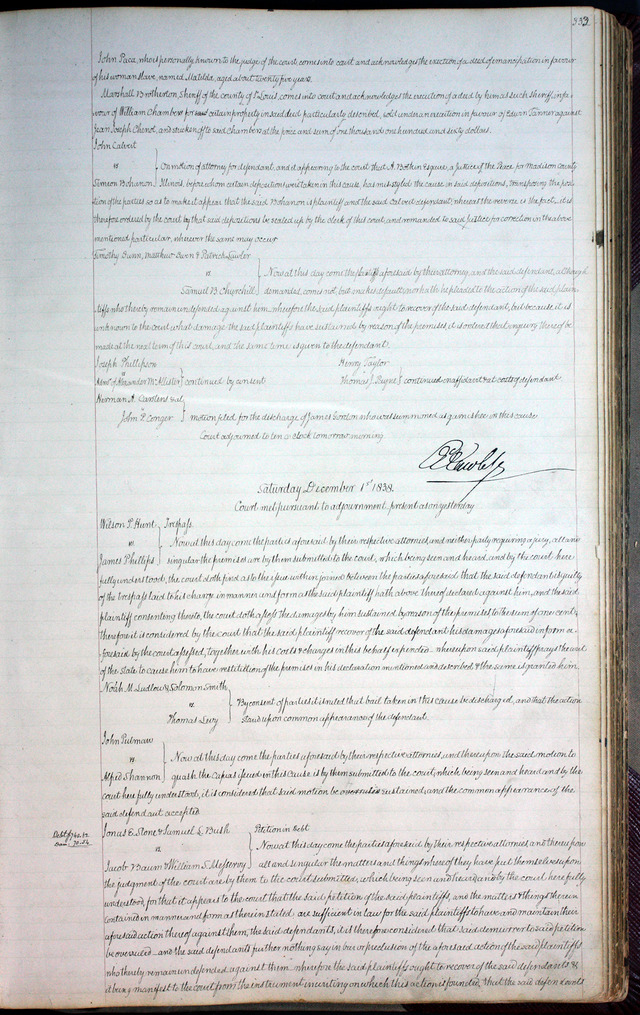 333
John Paca, who is personally known to the judge of the court, comes into court and acknowledges the execution of a deed of emancipation in favour
of his woman slave, named Matilda, aged about twenty five years.
Marshall Brotherton Sheriff of the county of St Louis, comes into court and acknowledges the execution of a deed by him as such sheriff, in fa-
vour of William Chambers for certain property in said deed particularly described, sold under an execution in favour of Edwin Tanner against
Jean Joseph Chenot, and stricken off to said Chambers at the price and sum of one thousand one hundred and sixty dollars.
John Calvit
vs
On motion of attorney for defendant, and it appearing to the court that A. Bothin Esquire, a Justice of the Peace for Madison county
Simeon Bohanon
Illinois, before whom certain depositions were taken in this cause, has mistyled the cause in said depositions, transposing the posi-
tion of the parties so as to make it appear that the said Bohanon is plaintiff and the said Calvit defendant, whereas the reverse is the fact, it is
therefore ordered by the court that said depositions be sealed up by the clerk of this court, and remanded to said Justice for correction in the above
mentioned particular, wherever the same may occur
Timothy Gunn, Matthew Gunn & Patrick Lawler
vs
Now at this day come the plaintiffs aforesaid by their attorney, and the said defendant, although
Samuel B. Churchill
demanded, comes not but makes default nor hath he pleaded to the action of the said plain-
tiffs who thereby remain undefended against him, wherefore the said plaintiffs ought to recover of the said defendant, but because it is
unknown to the court what damage the said plaintiffs have sustained by reason of the premises, it is ordered that enquiry thereof be
made at the next term of this court, and the same time is given to the defendant.
Joseph Phillipson
vs
Adm'r of Alexander McAllister
continued by consent
Henry Taylor
vs
Thomas J. Payne
continued on affidavit & at costs of defendant
Herman A. Carstens et al
vs
John P. Conger
motion filed for the discharge of James Gordon who was summoned as garnishee in this cause
Court adjourned to ten o clock tomorrow morning
Saturday December 1st 1838.
Court met pursuant to adjournment, present as on yesterday
Wilson P. Hunt
Trespass.
vs
Now at this day come the parties aforesaid by their respective attornies, and neither party requiring a jury, all and
James Phillips
singular the premises are by them submitted to the court, which being seen and heard, and by the court here
fully understood, the court doth find as to the issue within joined between the parties aforesaid that the said defendant is guilty
of the trespass laid to his charge in manner and form as the said plaintiff hath above thereof declared against him, and the said
plaintiff consenting thereto, the court doth assess the damages by him sustained by reason of the premises to the sum of one cent,
therefore it is considered by the court that the said plaintiff recover of the said defendant his damages aforesaid in form a-
foresaid by the court assessed, together with his costs & charges in this behalf expended. whereupon said plaintiff prays the writ
of the state to cause him to have restitution of the premises in his declaration mentioned and described & the same is granted him.
Noah M. Ludlow & Solomon Smith
vs
By consent of parties it is ruled that bail taken in this cause be discharged, and that the action
Thomas Levy
stand upon common appearance of the defendant.
John Putnam
vs
Now at this day come the parties aforesaid by their respective attornies, and thereupon the said motion to
Alfred Shannon
quash the Capias issued in this cause is by them submitted to the court, which being seen and heard and by the
court here fully understood, it is considered that said motion be sustained, and the common appearance of the
said defendant accepted
Jonas E. Stone & Samuel S. Bush
Petition in Debt
vs
Now at this day come the parties aforesaid by their respective attornies, and thereupon
Jacob Baum & William S. Messervy
all and singular the matters and things whereof they have put themselves upon
the judgment of the court are by them to the court submitted, which being seen and heard and by the court here fully
understood, for that it appears to the court that the said petition of the said plaintiffs, and the matters & things therein
contained in manner and form as therein stated are sufficient in law for the said plaintiffs to have and maintain their
aforesaid action thereof against them, the said defendants, it is therefore considered that said demurrer to said petition
be overruled and the said defendants further nothing say in bar or preclusion of the aforesaid action of the said plaintiffs
who thereby remain undefended against them wherefore the said plaintiffs ought to recover of the said defendants &
it being manifest to the court from the instrument in writing on which this action is founded, that the said defendants